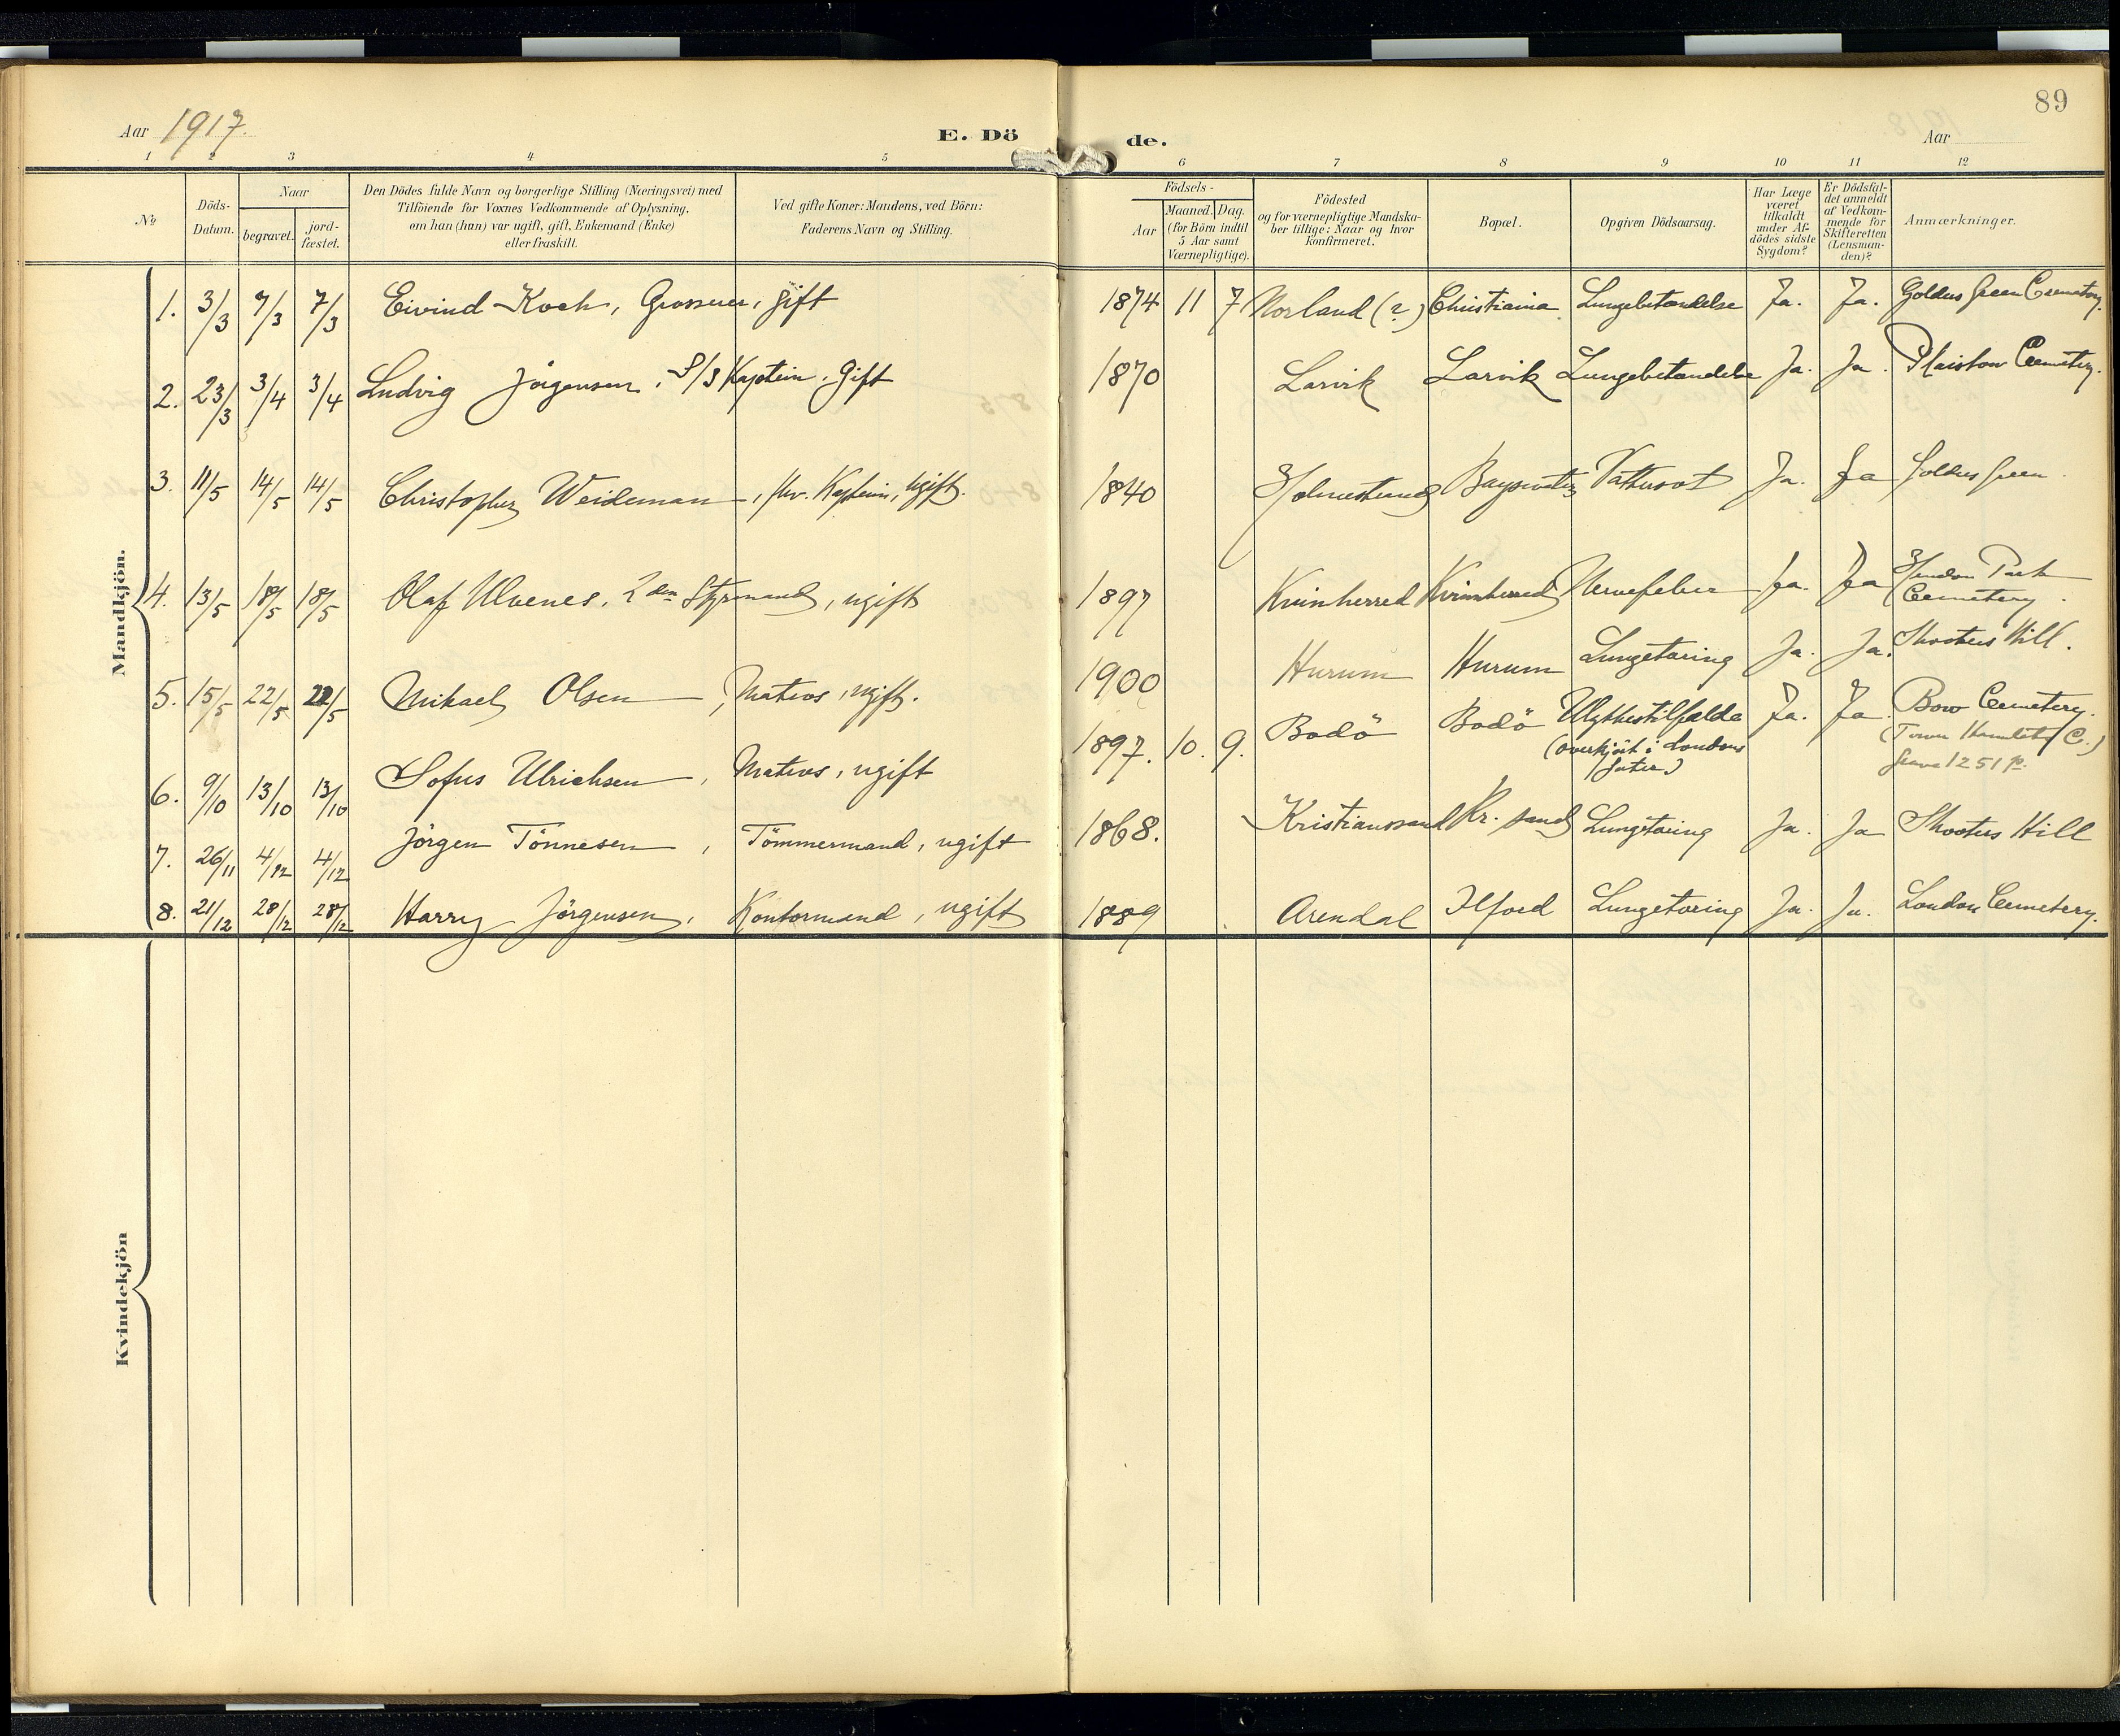 89
Aar 1917.
E. Dö de.
Aar
1 2 3 4 5 6 7 8 9 10 11 12
No
Döds-Datum.
Naar
begravet.
jord-fæstet.
Den Dödes fulde Navn og borgerlige Stilling (Næringsvei) med
Tilföiende for Voxnes Vedkommende af Oplysning.
om han (hun) var ugift, gift, Enkemand (Enke)
eller fraskilt.
Ved gifte Koner: Mandens, ved Börn:
Faderens Navn og Stilling.
Födsels-
Aar
Maaned. Dag.
(for Börn indtil
5 Aar samt
Værnepligtige).
Födested
og for værnepligtige Mandska-
ber tillige: Naar og hvor
konfirmeret.
Bopæl.
Opgiven Dödsaarsag.
Har Læge
været
tilkaldt
under Af-
dödes sidste
Sygdom?
Er Dödsfal-
det anmeldt
af Vedkom-
mende for
Skifteretten
(Lensman-
den)?
Anmærkninger.
Mandkjön.
1. 3/3 7/3 7/3 Eivind Koch, Grosserer, gift 1874 11 7 Norland (?) Christiania Lungebetændelse Ja. Ja. Golders Green Crematory.
2. 23/3 3/4 3/4 Ludvig Jörgensen, S/S Kaptein. Gift 1870 Larvik Larvik Lungebetændelse Ja. Ja. Plaistow Cemetery.
3. 11/5 14/5 14/5 Christopher Weideman, fhv. Kaptein, ugift. 1840 Holmestrand Bayswater Vattersot Ja. Ja Golders Green
4. 13/5 18/5 18/5 Olaf Ulvenes. 2den Styrmand, ugift 1897 Kvinherred Kvinherred Nervefeber Ja. Ja Hendon Park
Cemetery.
5. 15/5 22/5 22/5 Mikael Olsen, Matros, ugift. 1900 Hurum Hurum Lungetæring Ja. Ja. Shooters Hill.
6. 9/10 13/10 13/10 Sofus Ulrichsen, Matros, ugift 1897. 10. 9. Bodö Bodö Ulykkestilfælde Ja. Ja. Bow Cemetery.
(overkjört i Londons
gater)
(Tower Hamlets C.)
Grave 1251 P.
7. 26/11 4/12 4/12 Jörgen Tönnesen, Tömmermand, ugift 1868. Kristianssand Kr. sand Lungetæring Ja. Ja Shooters Hill
8. 21/12 28/12 28/12 Harry Jörgensen, Kontormand, ugift 1889 Arendal Ilford Lungetæring Ja. Ja. London Cemetery.
Kvindekjön